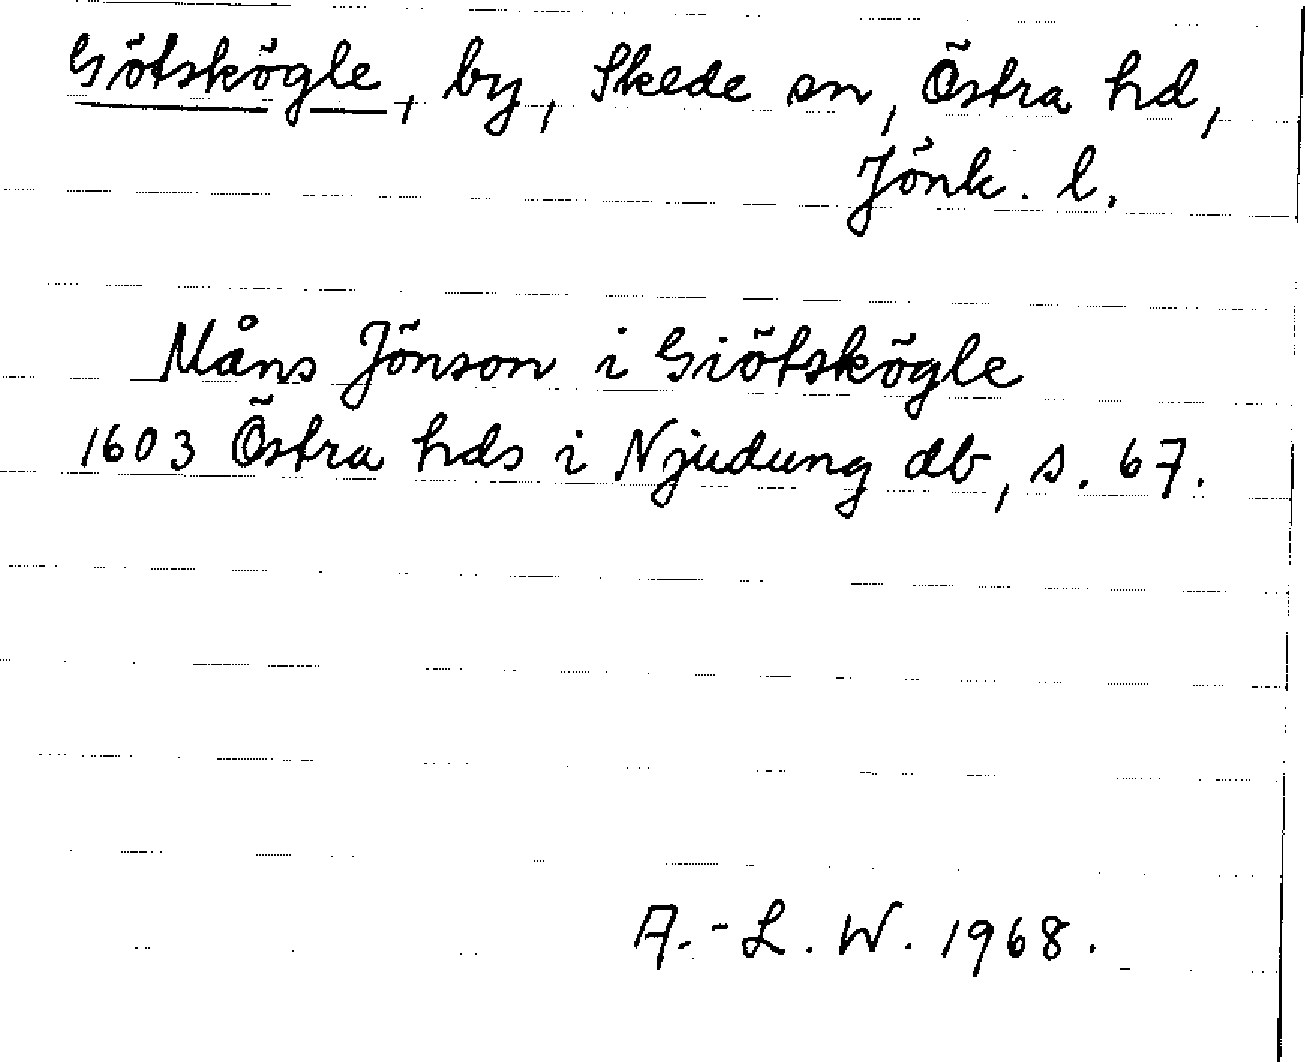 Götskögle, by, Skede sn, Östra hd,
Jönk. l.
Måns Jönson i Giötskögle
1603 Östra hds i Njudung db, s. 67.
A.-L. W. 1968.